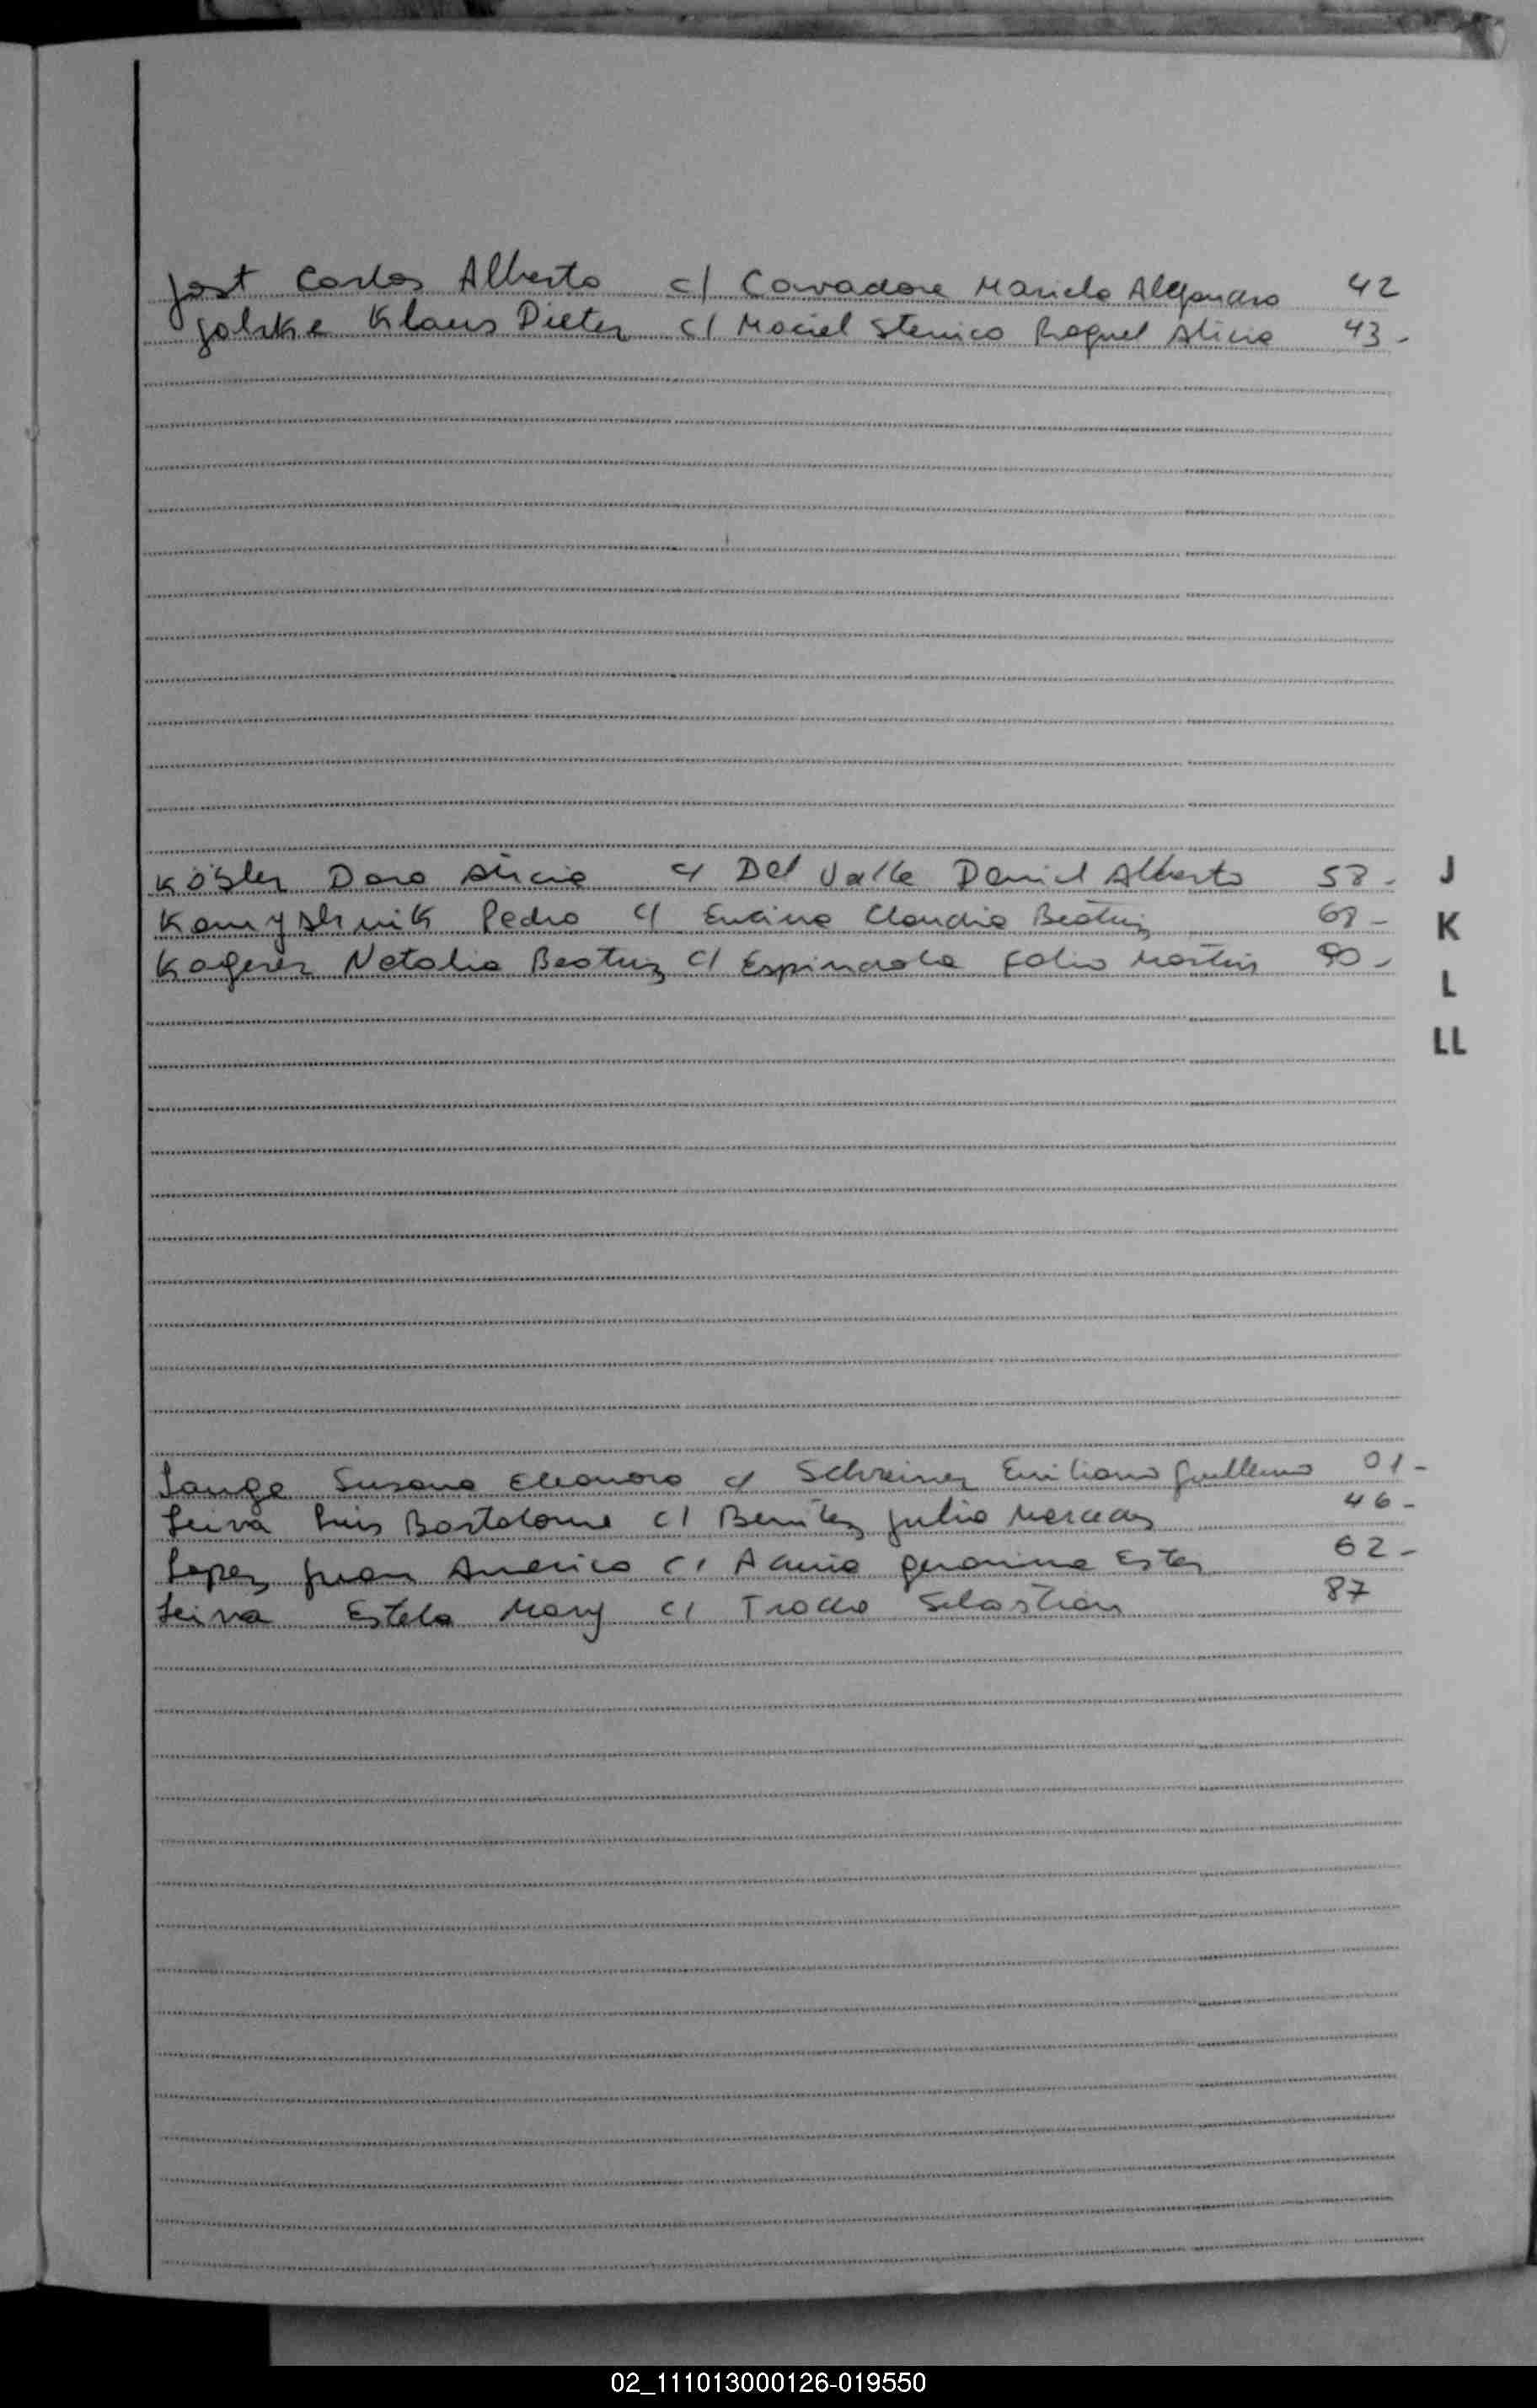 Jost Carlos Alberto c/ Cavadore Mariela Alejandra 42
Jolske Klaus Dieter c/ Maciel Stenico Raquel Alicia 43-
Kösler Dora Alicia c/ Del Valle Daniel Alberto 58-
J
Pedro c/ Encina Claudia Beatriz 68-
K
Kagerer Natalia Beatriz c/ Espindola Fabio Martin 90-
L
LL
Lange Susana Eleonora c/ Schreiner Emiliano Guillermo 01-
Leiva Luis Bartolome c/ Benitez Julia Mercedes 46-
Lopez Juan America c/ Acuña Geronima Ester 62-
Leiva Estela Mary c/ Sebastian 87
02_111013000126-019550